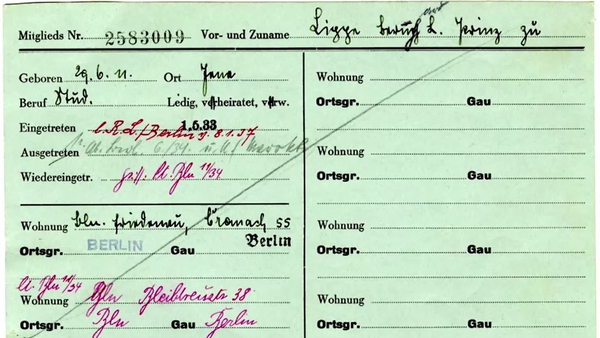 Mitglieds Nr. 2583009 Vor- und Zuname Lippe Prinz zu
Geboren 29.6.11. Ort Jena
Beruf Stud. Ledig, verheiratet, verw.
Eingetreten 1.5.33
Berlin 8.1.37
Ausgetreten
Wiedereingetr. 11/34
Wohnung Bln. Friedenau, Cranach 55
Ortsgr. BERLIN Gau Berlin
11/34
Wohnung Bln Bleibtreustr 38
Ortsgr. Bln Gau Berlin
Wohnung
Ortsgr. Gau
Wohnung
Ortsgr. Gau
Wohnung
Ortsgr. Gau
Wohnung
Ortsgr. Gau